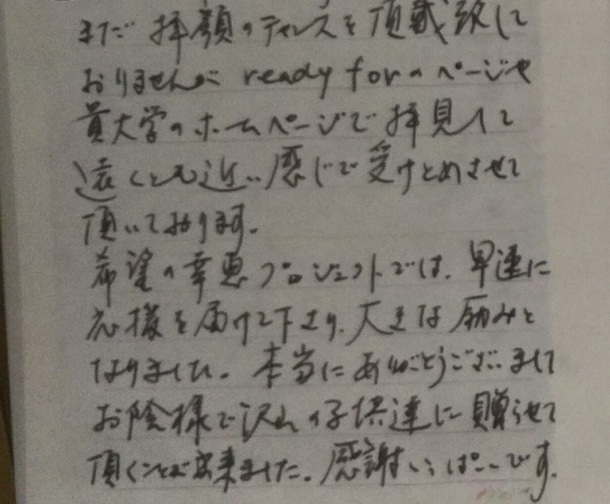 まだ拝顔のチャンスを頂戴致して
おりませんが ready forのページや
貴大学のホームページで拝見して
遠くとも近い感じで受けとめさせて
頂いております。
希望の幸恵プロジェクトでは、早速に
応援を届けて下さり、大きな励みと
なりました。本当にありがとうございまして
お陰様で沢山の子供達に贈らせて
頂くことが出来ました。感謝いっぱいです。